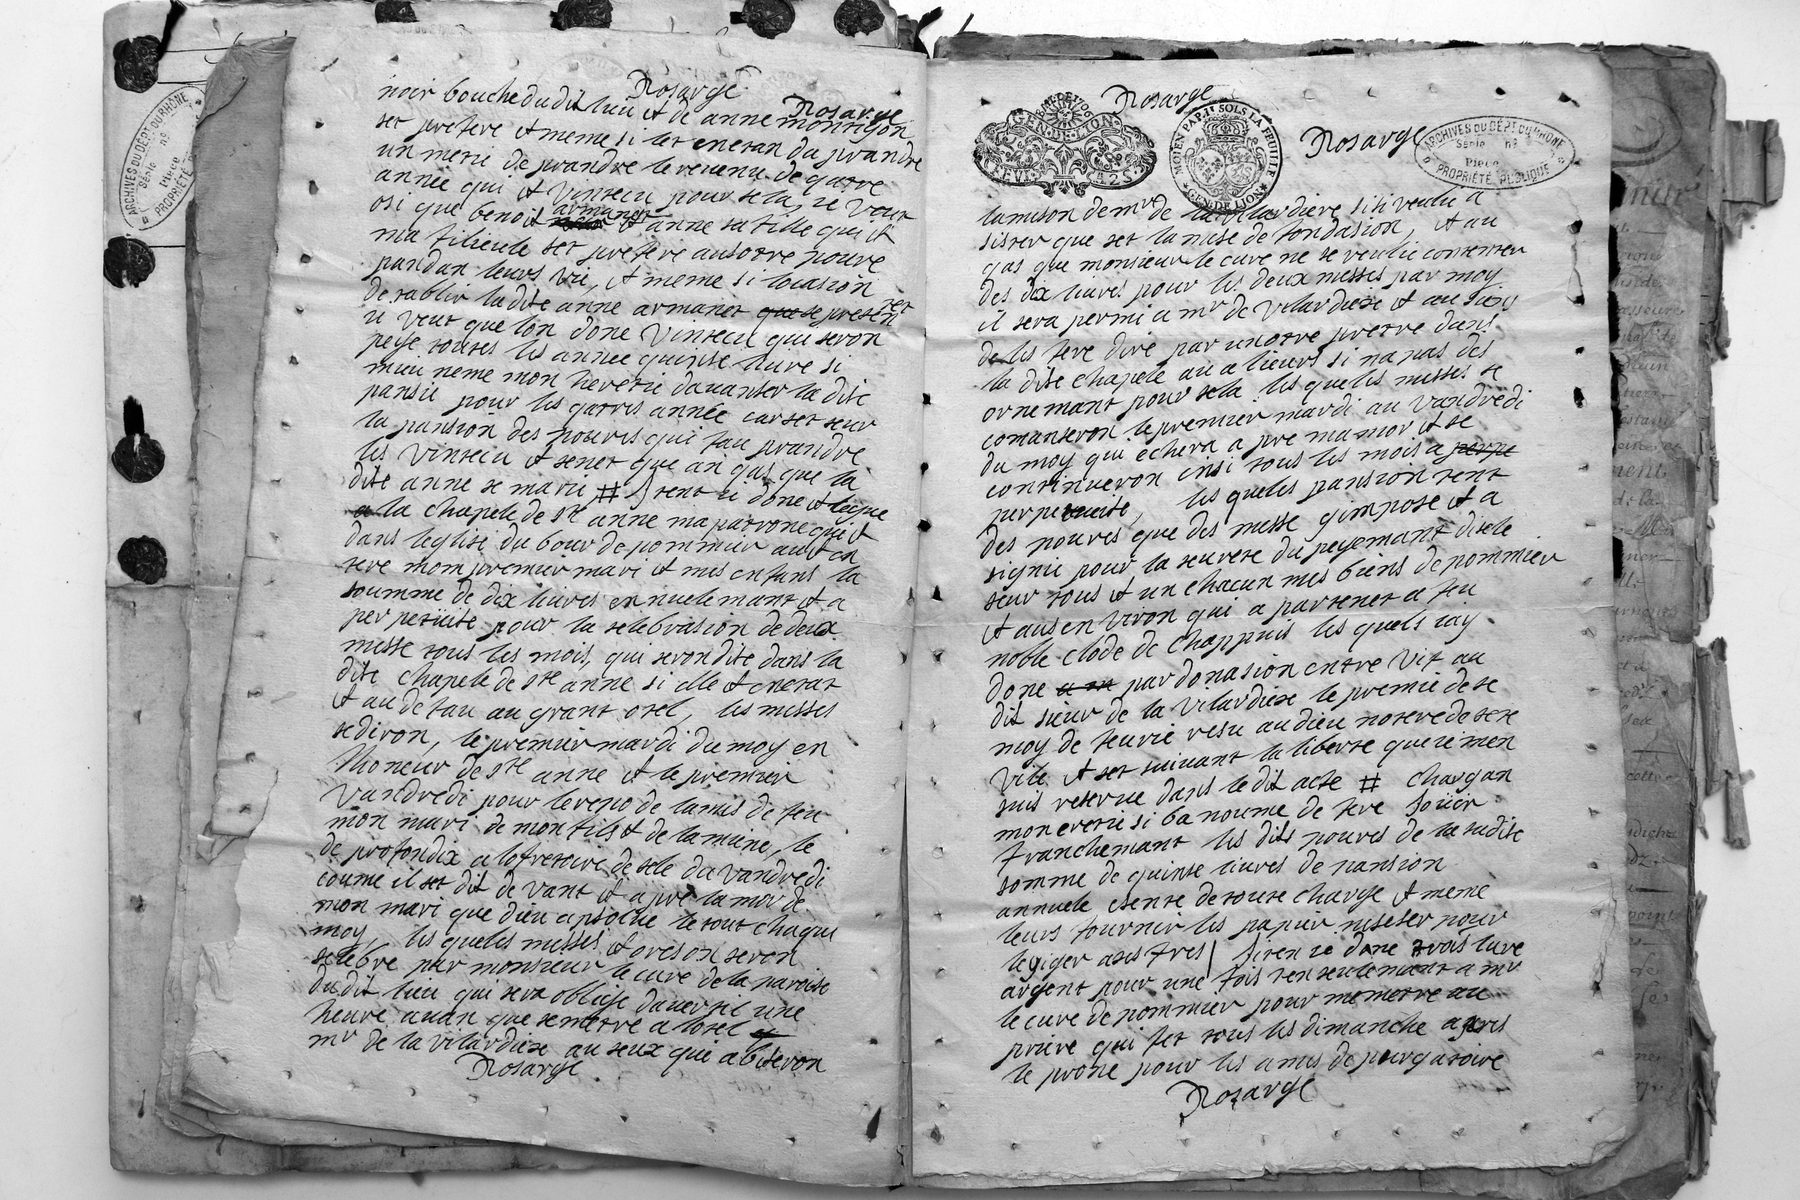 Rosarge
noir bouche du dit lieu et de anne monnyon
Rosarge
set prefere et meme si let eneran du prandre
un metie de prandre le revenu de quatre
année qui et vintecu pour sela, ie veut
osi que benoit armanet et anne sa fille qui et
ma filieule set prefere ausotre pouve
pandan leurs vie, et meme si locasion
de tablir la dite anne armanet que se presentet
ie veut que lon done vintecu qui seron
peye toutes les année quinse livre si
mieu neme mon heretie davanser la dite
pansie pour les quatres année car set seur
la pansion des pouvres qui fau prandre
les vintecu et senet que an qas que la
dite anne se marie # J tent ie done et legue
a la chapele de ste anne ma patrone qui et
dans leglise du bour de pommier aut en
tere mom premier mari et mes enfans la
soumme de dix livres ennuele mant et a
perpetuite pour la selebrasion de deux
messe tous les mois, qui seron dite dans la
dite chapele de ste anne si elle et enetat
et au defau au grant otel, les messes
se diron, le premier mardi du moy en
lhoneur de ste anne et le premier
vandredi pour le repo de lames de feu
mon mari de mon fils et de la mine, le
de profondix a lofretoire de sele du vandredi
coume il set dit de vant et a pre la mor de
mon mari que dieu apsolue le tout chaque
moy, les queles messes et oreson seron
selebre par monsieur le cure de la paroise
du dit lieu qui sera oblige davertie une
heure avan que se metre a lotel
mr de la vilardiere au seux qui abiteron
Rosarge
Rosarge
GEN·DE·LION
MOYEN PAP. 1s SOLS LA FEUILLE
GEN·DE LION
Rosarge
ARCHIVES DU DÉPT DU RHÔNE
Série no
Pièce
PROPRIÉTÉ PUBLIQUE
la maison de mr de la vilardiere si si veule a
sister que set la mise de fondasion, et au
qas que monsieur le cure ne se veulie contenter
des dix livres pour les deux messes par moy
il sera permi a mr de vilardiere et au suiy
de les fere dire par un otre pretre dans
la dite chapele au a lieurs si na pas des
ornemant pour sela les queles messes se
comanseron le premier mardi au vandredi
du moy qui echera a pre ma mor et se
continueron insi tous les mois a perpe
perpetuite, les queles pansion tent
des pouvres que des messe gimpose et a
signie pour la seurete du peyemant disele
seur tous et un chacun mes biens de pommier
et aus en viron qui a partenet a feu
noble clode de chappuis les quels iay
done a m par donasion entre vif au
dit sieur de la vilardiere le premie de se
moy de feurie resu au dieu notere de sete
vile et set suivant la liberte que ie men
suis reserve dans le dit acte # chargan
mon eretie si ba noume de fere Joüir
franchemant les dits pouvres de la sudite
somme de quinse livres de pansion
annuele esente de toute charge et meme
leurs fournir les papier neseser pour
legiger a ses fres / J iren ie done trois livre
argent pour une fois ten seulement a mr
le cure de pommier pour me metre au
priere qui fet tous les dimanche apres
le prone pour les ames de purgatoire
Rosarge